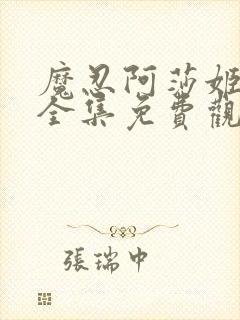 魔忍阿莎姬
全集免費觀
張瑞中